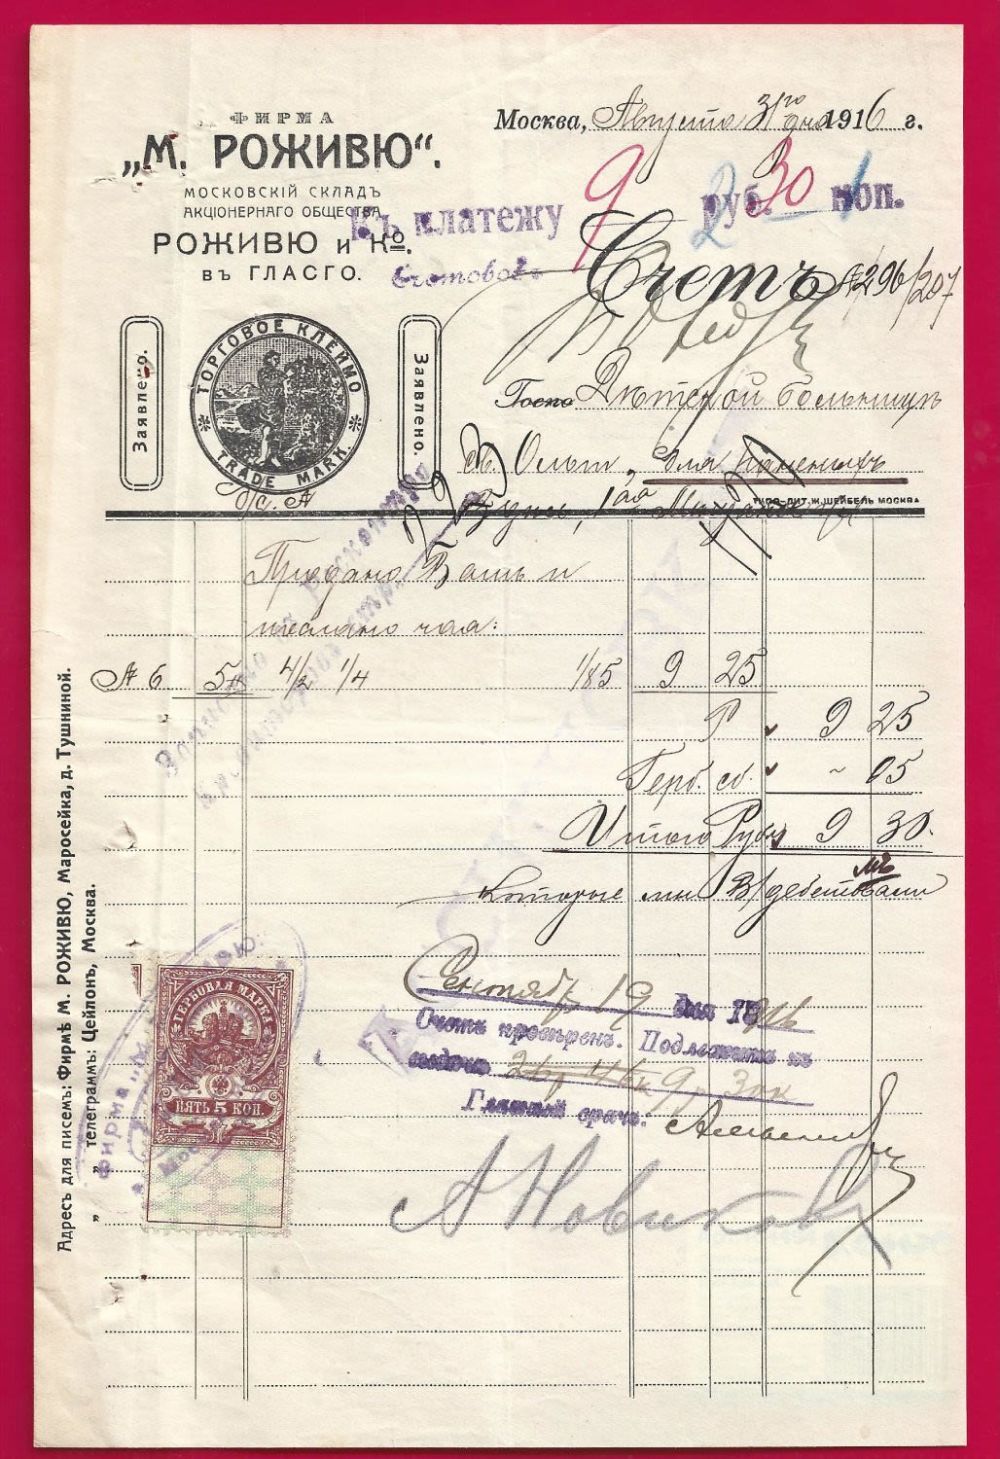 ФИРМА
„М. РОЖИВЮ“.
МОСКОВСКІЙ СКЛАДЪ
АКЦІОНЕРНАГО ОБЩЕСТВА
РОЖИВЮ и Ко.
ВЪ ГЛАСГО.
Москва, Августа 31го дня 1916 г.
Къ платежу 9 руб. 30 коп.
Счетъ № 296/207
Заявлено.
ТОРГОВОЕ КЛЕЙМО
TRADE MARK.
Заявлено.
Госпо Дѣтской больницѣ
св. Ольги, для
1ая
ТИПО-ЛИТ. Ж. ШЕЙБЕЛЬ МОСКВА
Продано Вамъ и
послано чая:
№ 6 5 4/2 1/4 1/85 9 25
Р 9 25
Герб. сб. ~ 05
Итого Руб. 9 30
которые мы В/дебетовали
Сентябрь 19 дня 1916
Счетъ провѣренъ. Подлежитъ къ
выдачѣ 9 р 30 к
Главный врачъ.
А Новиковъ
ГЕРБОВАЯ МАРКА
ПЯТЬ 5 КОП.
Фирма „М.
Адресъ для писемъ: Фирмѣ М. РОЖИВЮ, Маросейка, д. Тушниной.
„ „ телеграммъ: Цейлонъ, Москва.